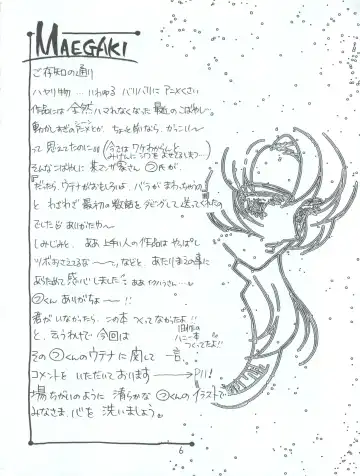 MAEGAKI
ご存知の通り
ハヤリ物… いわゆる バリバリに アニメくさい
作品には 全然ハマれなくなった 最近のこばやし…
動かしすぎのアニメとか、ちょっと前なら、かっこいい〜
って 思えてたのにョ (今では ワケわからんと みけんに しわをよせてしまう…)
そんなこばやしに 某マンガ家さん ②氏が、
「だったら、ウテナがおもしろいよ、バラがまわっちゃうの」
と わざわざ 最初の数話を ダビングして 送ってくれたの
でした ありがたや〜
しみじみと、 ああ 上手い人の作品は やっぱし
ツボおさえてるな〜〜、などと、あたりまえの事に
あらためて 感心しました
②くん ありがちょ〜〜!!
君がいなかったら、この本 つくってなかったよ!!
旧作の ハニー本 つくってたよ!!
と、云うわけで 今回は
その ②くんのウテナに関して 一言、
コメントを いただいております → P11!
場ちがいのように 清らかな ②くんの イラストで
みなさま、心を 洗いましょう。
6